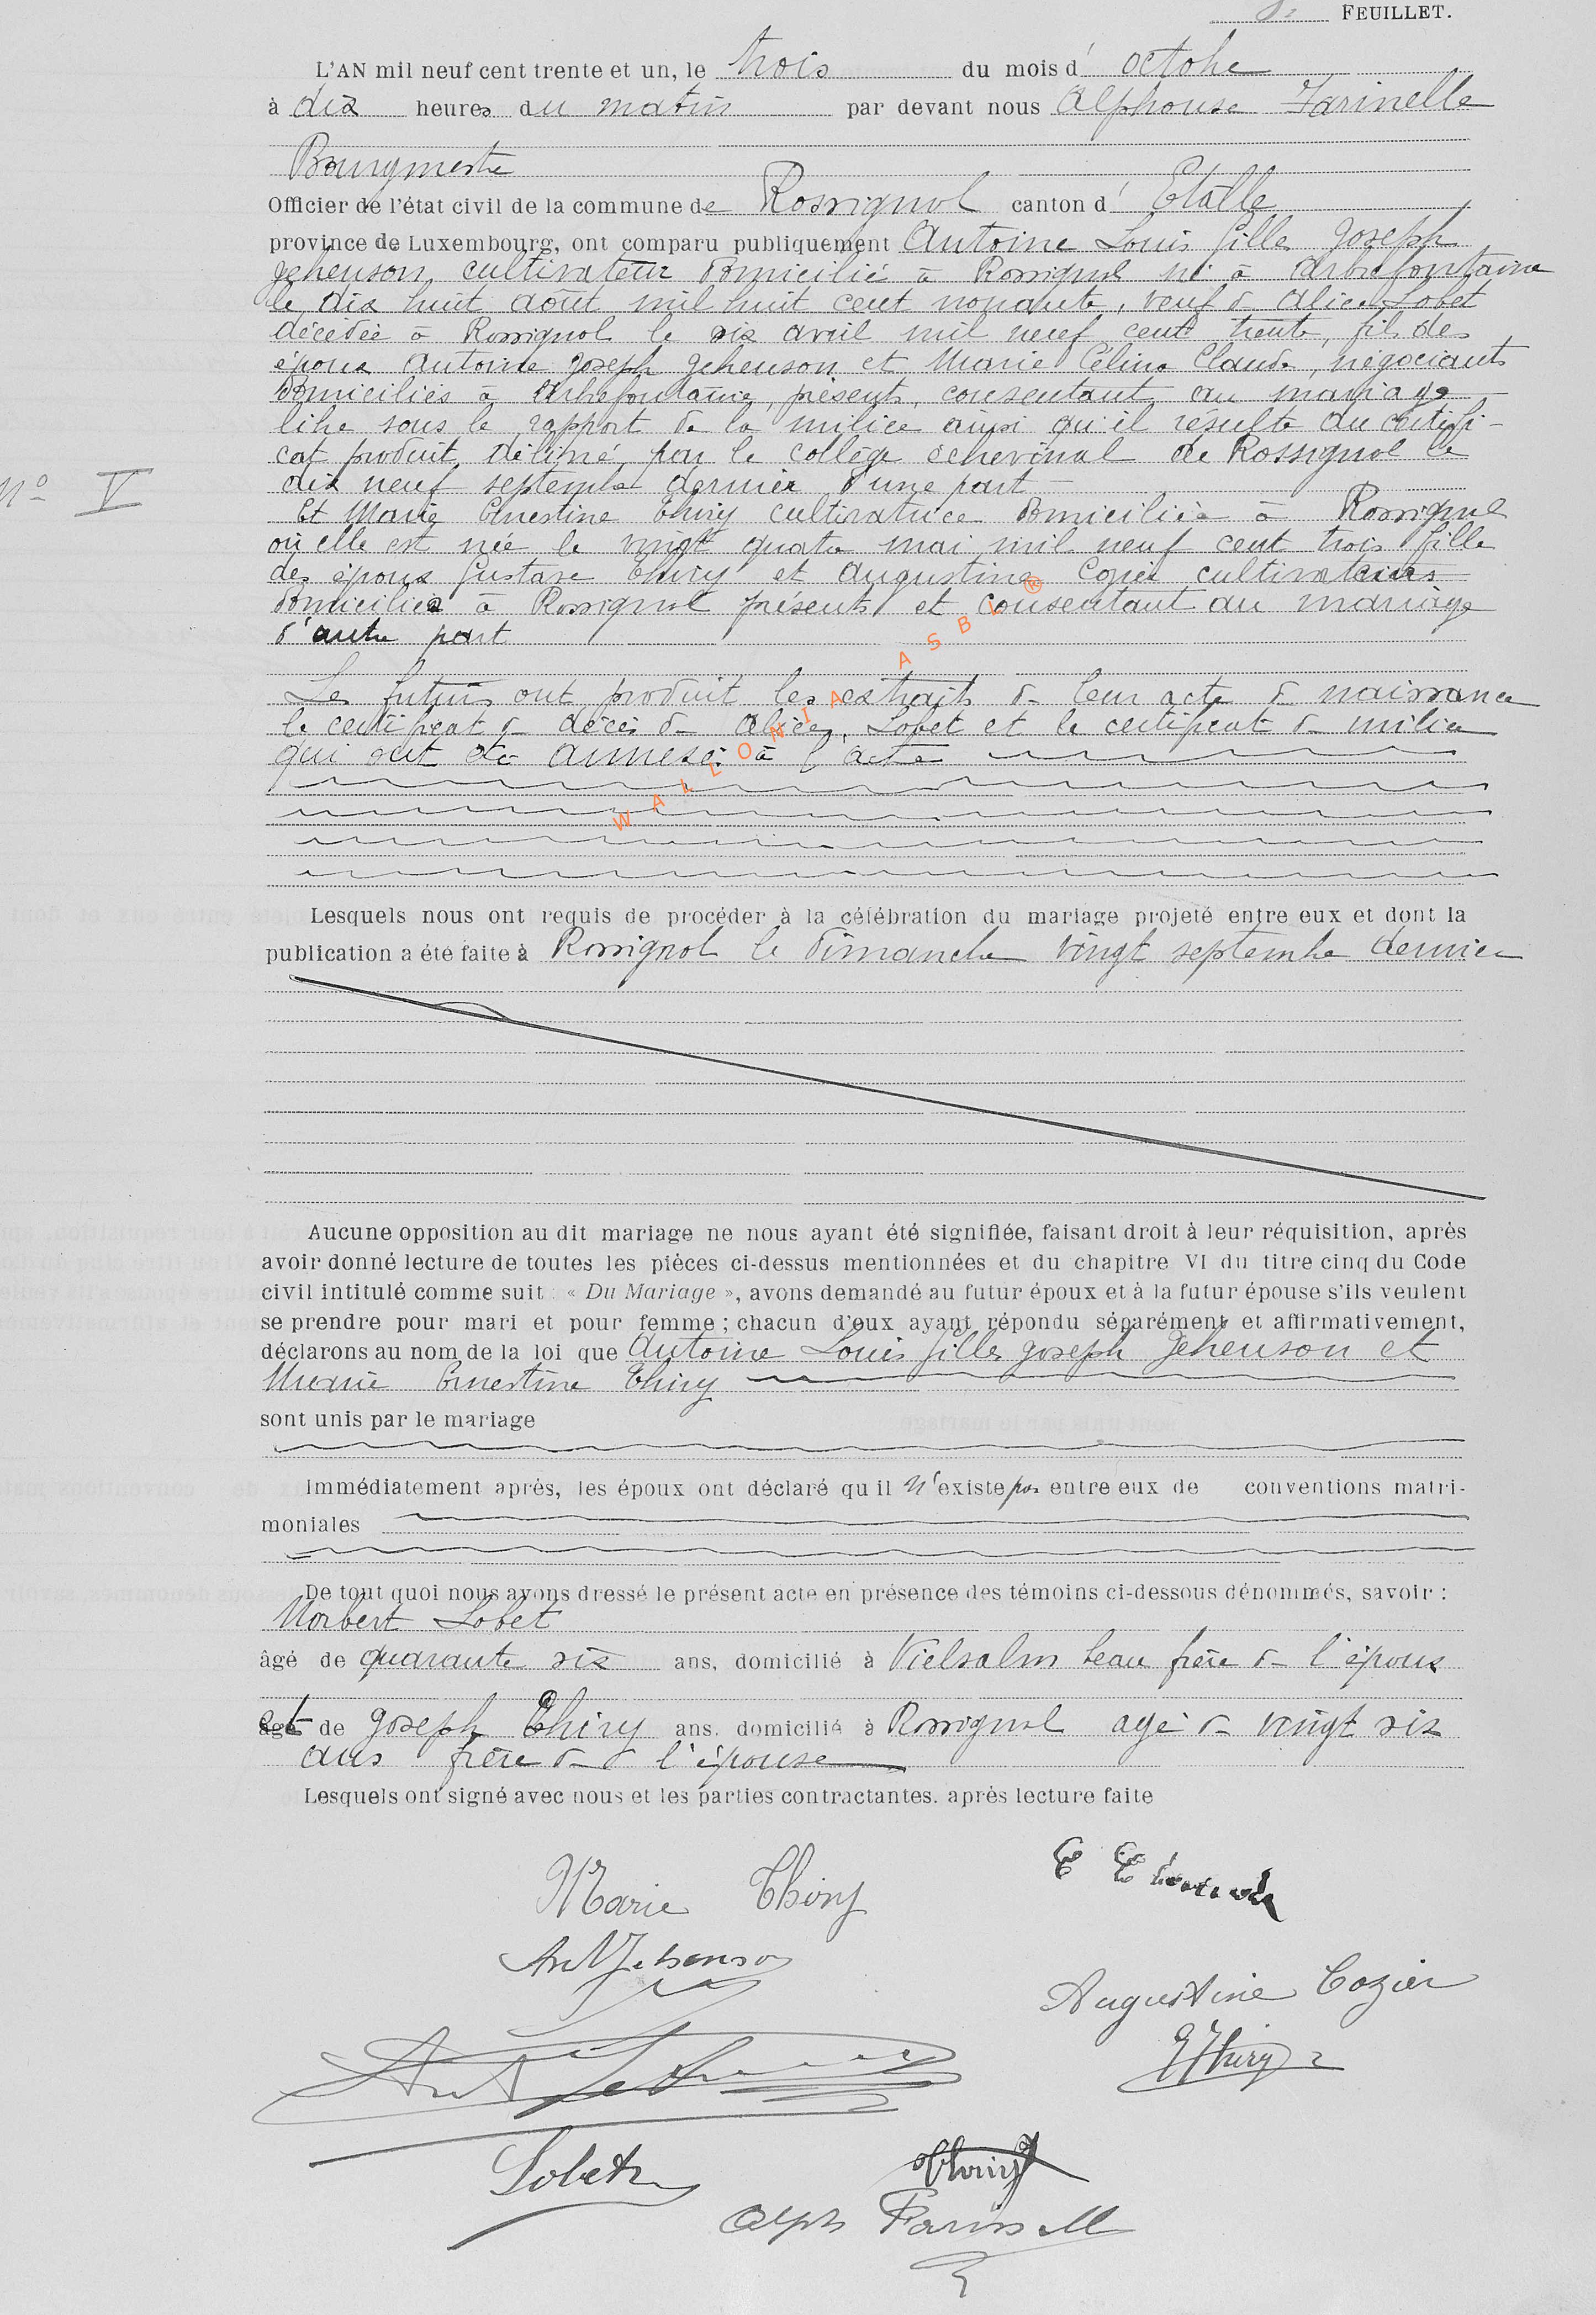 FEUILLET.
L'AN mil neuf cent trente et un, le trois du mois d' octobre
à dix heures du matin par devant nous Alphonse Farinelle
Bourgmestre
Officier de l'état civil de la commune de Rossignol canton d' Etalle
province de Luxembourg, ont comparu publiquement Antoine Louis Gilles Joseph
Jehenson, cultivateur domicilié à Rossignol né à Arbrefontaine
le dix huit août mil huit cent nonante, veuf de Alice Lobet
décédée à Rossignol le six avril mil neuf cent trente, fils des
époux Antoine Joseph Jehenson et Marie Céline Claude, négociants
domiciliés à Arbrefontaine, présents, consentant au mariage
libre sous le rapport de la milice ainsi qu'il résulte du certifi-
cat produit, délivré par le collège échevinal de Rossignol le
dix neuf septembre dernier d'une part
No V
Et Marie Ernestine Thiry cultivatrice domiciliée à Rossignol
où elle est née le vingt quatre mai mil neuf cent trois fille
des époux Gustave Thiry et Augustine Cozier cultivateurs
domiciliés à Rossignol présents et consentant au mariage
d'autre part
Les futurs ont produit les extraits de leur acte de naissance
le certificat de décès de Alice Lobet et le certificat de milice
qui ont été annexé à l'acte
WALLONIA ASBL ®
Lesquels nous ont requis de procéder à la célébration du mariage projeté entre eux et dont la
publication a été faite à Rossignol le dimanche vingt septembre dernier
Aucune opposition au dit mariage ne nous ayant été signifiée, faisant droit à leur réquisition, après
avoir donné lecture de toutes les pièces ci-dessus mentionnées et du chapitre VI du titre cinq du Code
civil intitulé comme suit : « Du Mariage », avons demandé au futur époux et à la futur épouse s'ils veulent
se prendre pour mari et pour femme ; chacun d'eux ayant répondu séparément et affirmativement,
déclarons au nom de la loi que Antoine Louis Gilles Joseph Jehenson et
Marie Ernestine Thiry
sont unis par le mariage
Immédiatement après, les époux ont déclaré qu'il n'existe pas entre eux de conventions matri-
moniales
De tout quoi nous avons dressé le présent acte en présence des témoins ci-dessous dénommés, savoir :
Norbert Lobet
âgé de quarante six ans, domicilié à Vielsalm beau frère de l'époux
et de Joseph Thiry ans, domicilié à Rossignol agé de vingt six
ans frère de l'épouse
Lesquels ont signé avec nous et les parties contractantes, après lecture faite
Marie Thiry
Ant Jehenson
Augustine Cozier
G Thiry
Lobet
Thiry
Alph Farinelle